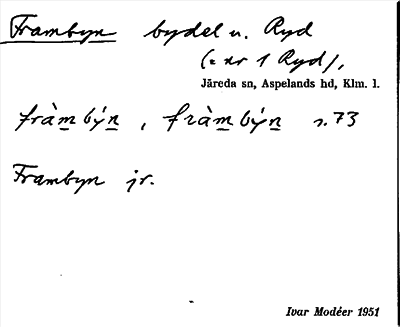 Frambyn bydel u. Ryd
(= nr 1 Ryd),
Järeda sn, Aspelands hd, Klm. l.
fràmbýn, fràmbýn s. 73
Frambyn jr.
Ivar Modéer 1951